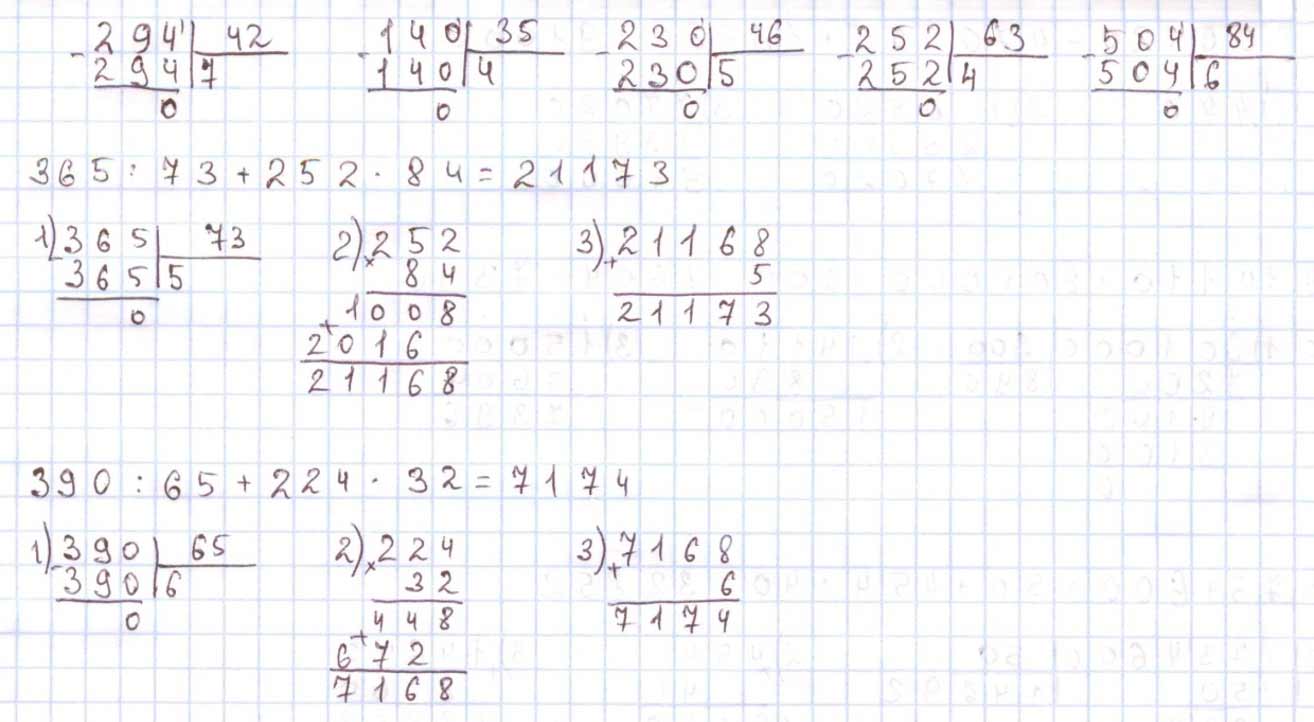 - 294 | 42 - 140 | 35 - 230 | 46 - 252 | 63 - 504 | 84
294 | 7 140 | 4 230 | 5 252 | 4 504 | 6
0 0 0 0 0
365 : 73 + 252 · 84 = 21173
1) - 365 | 73 2) × 252 3) + 21168
365 | 5 84 5
0 + 1008 21173
2016
21168
390 : 65 + 224 · 32 = 7174
1) - 390 | 65 2) × 224 3) + 7168
390 | 6 32 6
0 + 448 7174
672
7168